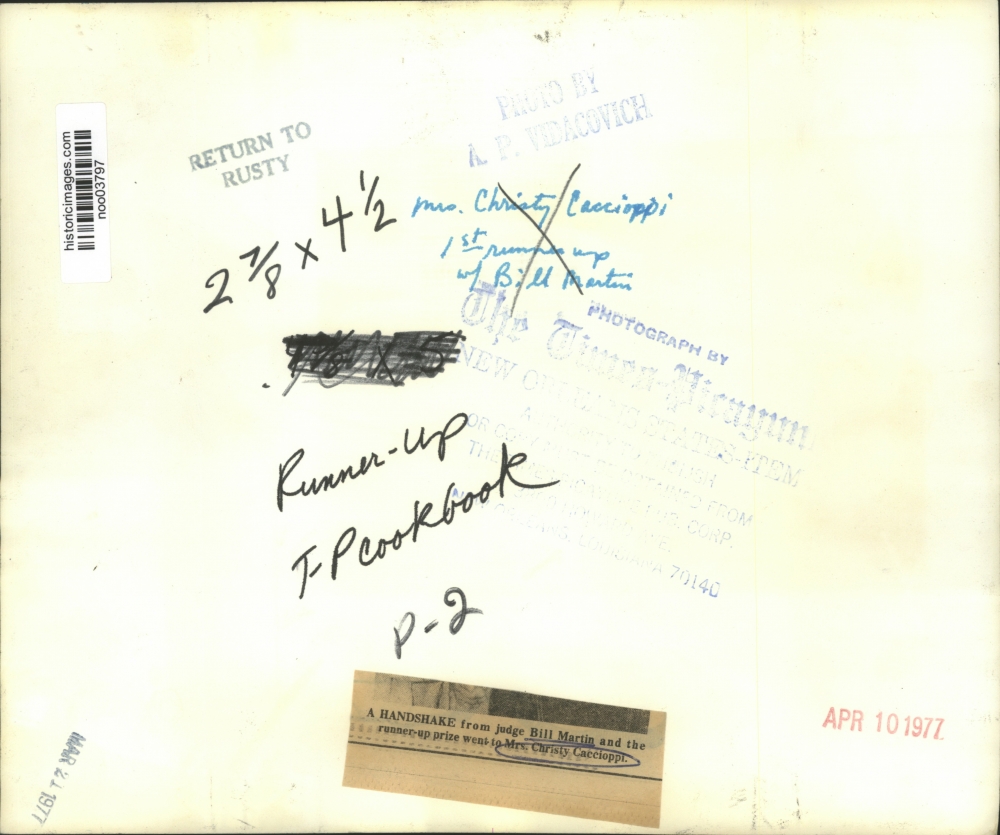 historicimages.com
noo03797
RETURN TO
RUSTY
PHOTO BY
A. P. VIDACOVICH
2 7/8 x 4 1/2
mrs. Christy Caccioppi
1st runner up
w/ Bill Martin
PHOTOGRAPH BY
The Times-Picayune
NEW ORLEANS STATES-ITEM
OR
FROM
THE CORP.
LOUISIANA 70140
Runner-Up
T-P cookbook
P-2
A HANDSHAKE from judge Bill Martin and the
runner-up prize went to Mrs. Christy Caccioppi.
APR 10 1977
MAR 21 1977